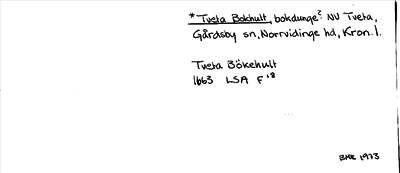 * Tveta Bokhult, bokdunge? NV Tveta,
Gårdsby sn, Norrvidinge hd, Kron. l.
Tveta Bökehult
1663 LSA F 18
1973